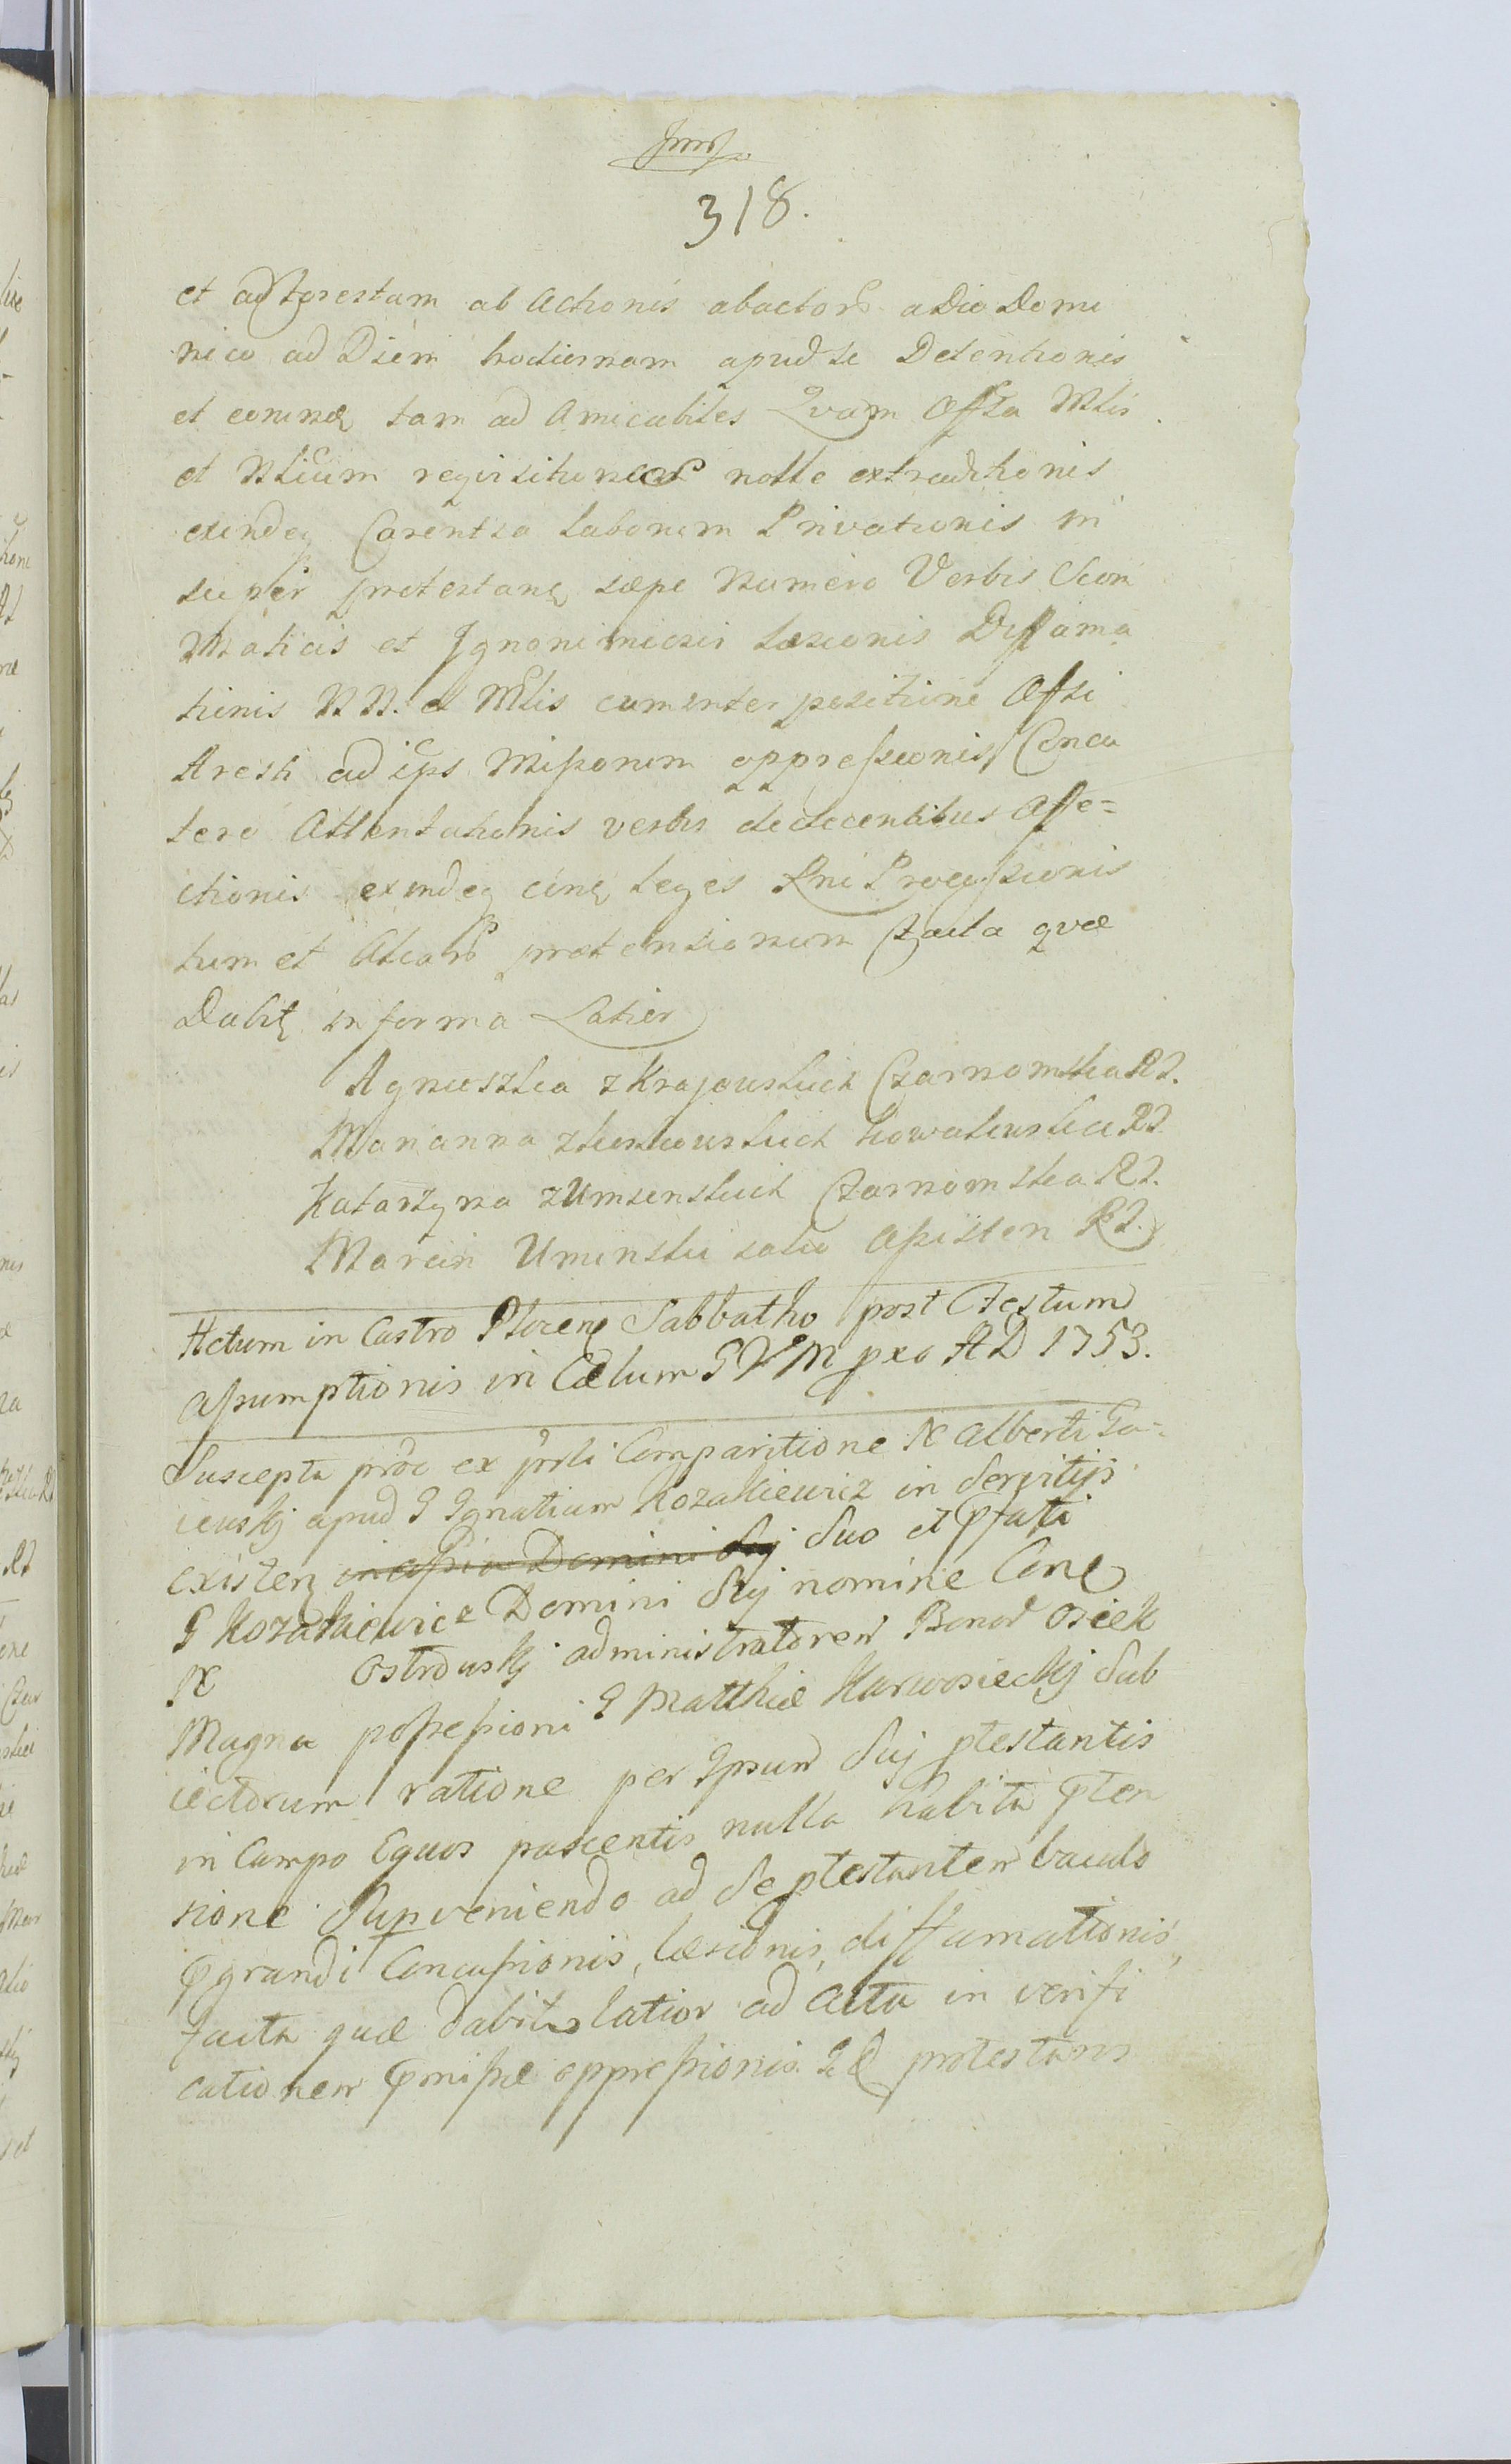 318.
et ad forestam ab Actionis abactorum a Die Domi
nico ad Diem hodiernam apud se Detentionis
et eorundem tam ad Amicabiles Quam Offta Mlis
et Nlium reqvisitiones nolle extraditionis
exindeq Carentia laborum Privationis in
super protestanę sæpe Numero Verbis Scom
Maticis et Ignonimiosis Læsionis Diffama
tionis NN. et Mlis cum interpositione Offi
Aresti ad ips Missorum oppressionis Concu
tere Attentationis verbis dedecentibus affe=
ctionis exindeq cinę leges Rni Processionis
tum et Aliarum protensionum facta qvæ
Dabitę in forma Latior
Agnieszka z Krajewskich Czarnomska RS.
Marianna z Kowalewska RS
Katarzyna z Uminskich Czarnomska RS.
Marcin Uminski iako Assisten RS.
Actum in Castro Plocenę Sabbatho post Festum
assumptionis in Cælum BVM pro AD 1753.
Suscepta prõc ex prsti Comparitione N Alberti Ga=
iewskj apud G Ignatium Kozakiewicz in Servitijs
existenę in assia Domini Suj Suo et Pfati
G Kozakiewicz Domini Suj nomine Conę
N Ostrowskj administratorem Bonor Osiek
Magna possessioni G Matthiæ Karwosieckj Sub
iectorum ratione per Ipsum Suj ptestantis
in Campo Equos pascentis nulla habita pten
sione Supveniendo ad Se ptestantem baculo
pgrandi Concussionis, læsionis, diffamationis
facta quæ dabitur latior ad Acta in verifi
cationem pmissæ oppressionis protestans